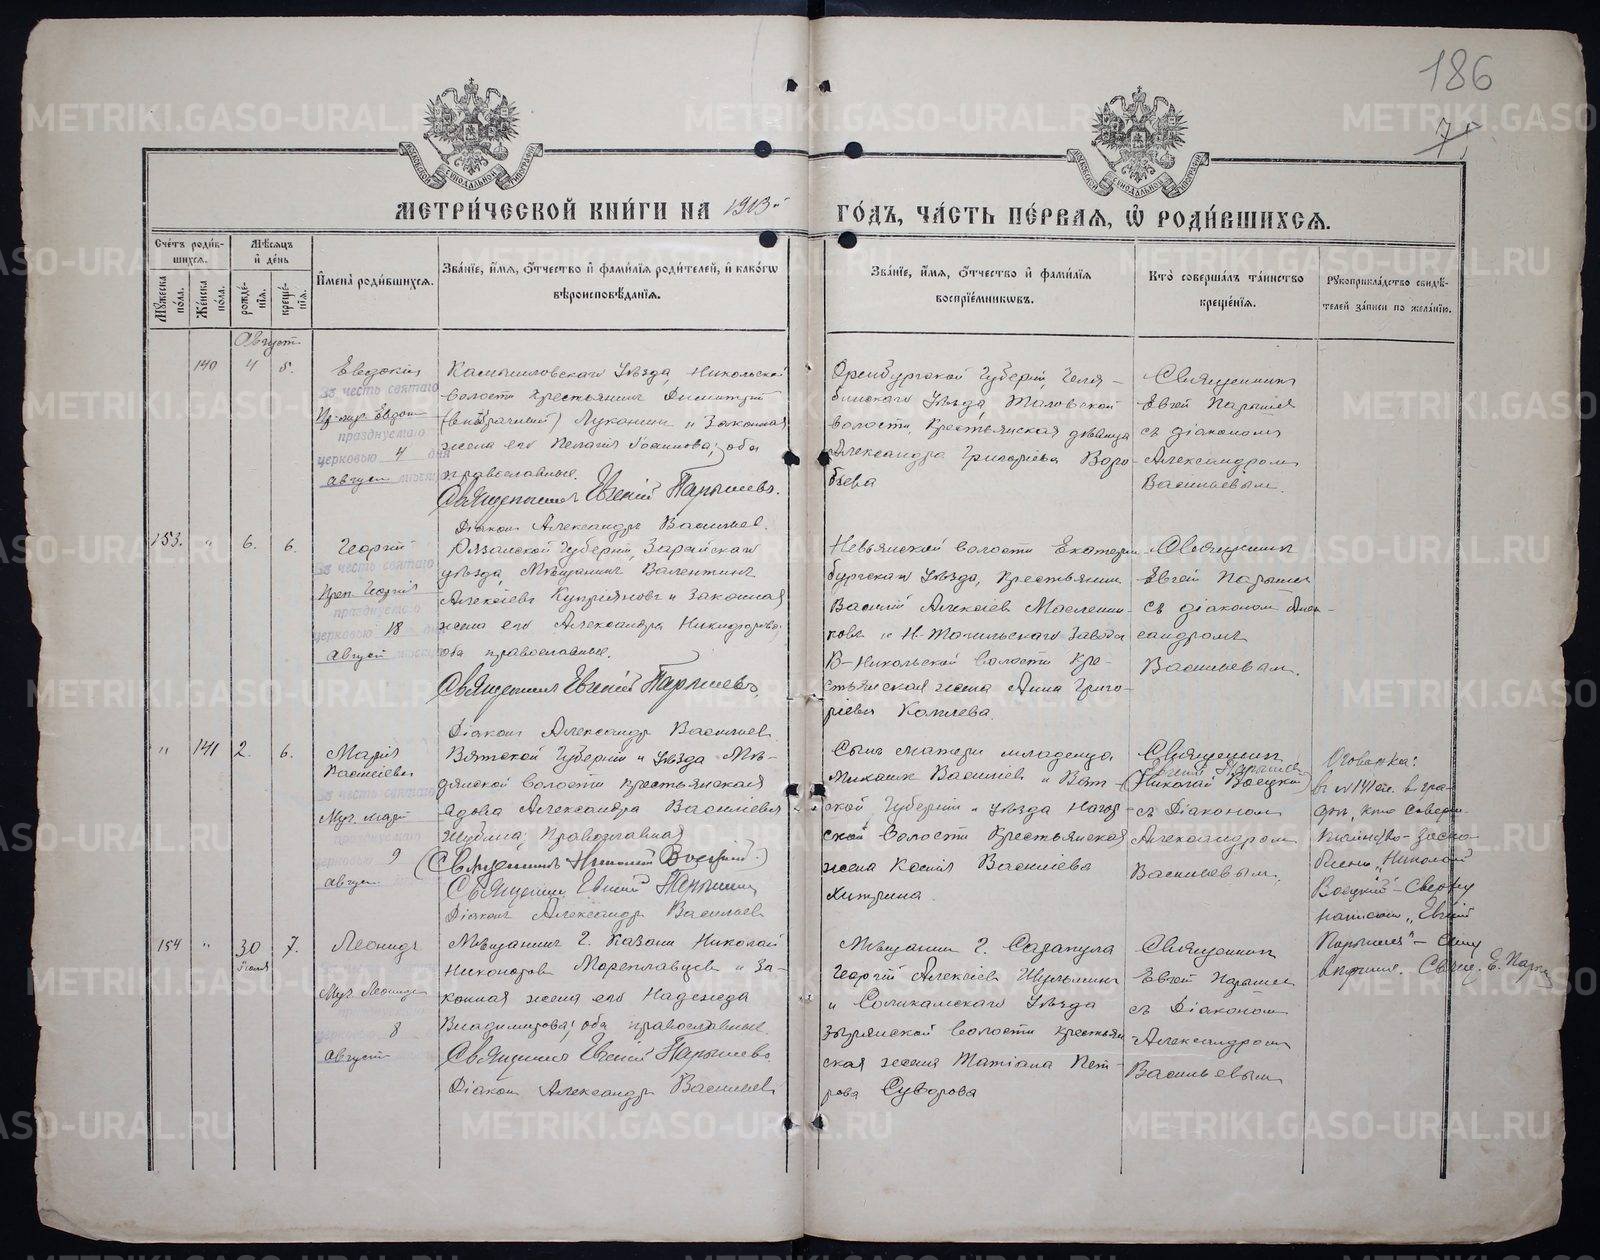 186
7
МОСКОВСКОЙ СУНОДАЛЬНОЙ ТИПОГРАФІИ
МОСКОВСКОЙ СУНОДАЛЬНОЙ ТИПОГРАФІИ
МЕТРИ́ЧЕСКОЙ КНИ́ГИ НА 1913й
ГО́ДЪ, ЧА́СТЬ ПЕ́РВАЯ, Ѡ РОДИ́ВШИХСЯ.
Сче́тъ роди́вшихся.
Му́жеска по́ла.
Же́нска по́ла.
Мѣ́сяцъ и де́нь
рожде́нія.
креще́нія.
Имена̀ роди́вшихся.
Зва́ніе, и́мя, о́тчество и фами́лія роди́телей, и како́гѡ
вѣроисповѣ́данія.
Зва́ніе, и́мя, о́тчество и фами́лія
воспріе́мникѡвъ.
Кто̀ соверша́лъ та́инство
креще́нія.
Рукоприкла́дство свидѣ́-
телей за́писи по жела́нію.
Августъ
140
4
5.
Евдокія
Въ честь святаго
Пр-муч. Евдок
празднуемаго
церковью 4 дня
август мѣсяца
Камышловскаго Уѣзда, Никольской
волости Крестьянинъ Димитрій
(внѣбрачный) Луканин и Законная
жена его Пелагія; оба
православные.
Священникъ Евгеній Парышевъ.
Діаконъ Александръ Васильев.
Оренбургской Губерніи, Челя-
бинскаго Уѣзда, Таловской
волости, Крестьянская дѣвица
Александра Григоріева Воро-
бьева
Священникъ
Евгеній Парышев
съ діакономъ
Александромъ
Васильевымъ.
153.
"
6.
6.
Георгій
Въ честь святаго
Преп. Георгія
празднуемаго
церковью 18 дня
Август мѣсяца
Рязанской Губерніи, Зарайскаго
уѣзда, Мѣщанинъ Валентинъ
Алексіевъ Купріяновъ и Законная
жена его Александра Никифорова;
оба православные.
Священникъ Евгеній Парышевъ.
Діаконъ Александръ Васильев
Невьянской волости Екатерин-
бургскаго Уѣзда, Крестьянин
Василій Алексіев Маслени-
ковъ и Н-Тагильскаго Завода
В-Никольской волости Кре-
стьянская жена Анна Григо-
ріева Копылева.
Священникъ
Евгеній Парышев
съ діаконом Алек-
сандромъ
Васильевым.
"
141
2.
6.
Марія
Василіева
Въ честь святаго
Муч. Маріи
празднуемаго
церковью 9
август.
Вятской Губерніи и Уѣзда Мѣ-
дянской волости Крестьянская
вдова Александра Василіева
Шубина; Православная
(Священникъ Николай Воецкій.)
Священник Евгеній Парышев
Діаконъ Александръ Васильев
Сынъ матери младенца
Михаил Василіев и Вят-
ской Губерніи и уѣзда Нагор-
ской волости Крестьянская
жена Ксенія Василіева
Хитрина.
Священник
Евгеній Парышев
(Николай Воецкій)
съ Діаконом
Александром
Васильевым.
Оговорка:
въ №141ом. в гра-
фѣ, кто соверш.
таинство — заско-
блено „Николай
Воецкій" — сверху
написано „Евгеній
Парышев" — сему
верить. Свящ. Е. Парыш
154
"
30
Іюля
7.
Леонидъ
Муч. Леонида
празднуемаго
церковью 8
Август
Мѣщанинъ г. Казани Николай
Никоноров Мореплавцев и За-
конная жена его Надежда
Владимирова; оба православные.
Священникъ Евгеній Парышевъ
Діаконъ Александръ Васильев
Мѣщанин г. Сарапула
Георгій Алексіев Шульмин
и Соликамскаго Уѣзда
Зырянской волости Крестьян
ская жена Татіана Пет-
рова Суворова
Священник
Евгеній Парышев
съ Діаконом
Александром
Васильевым